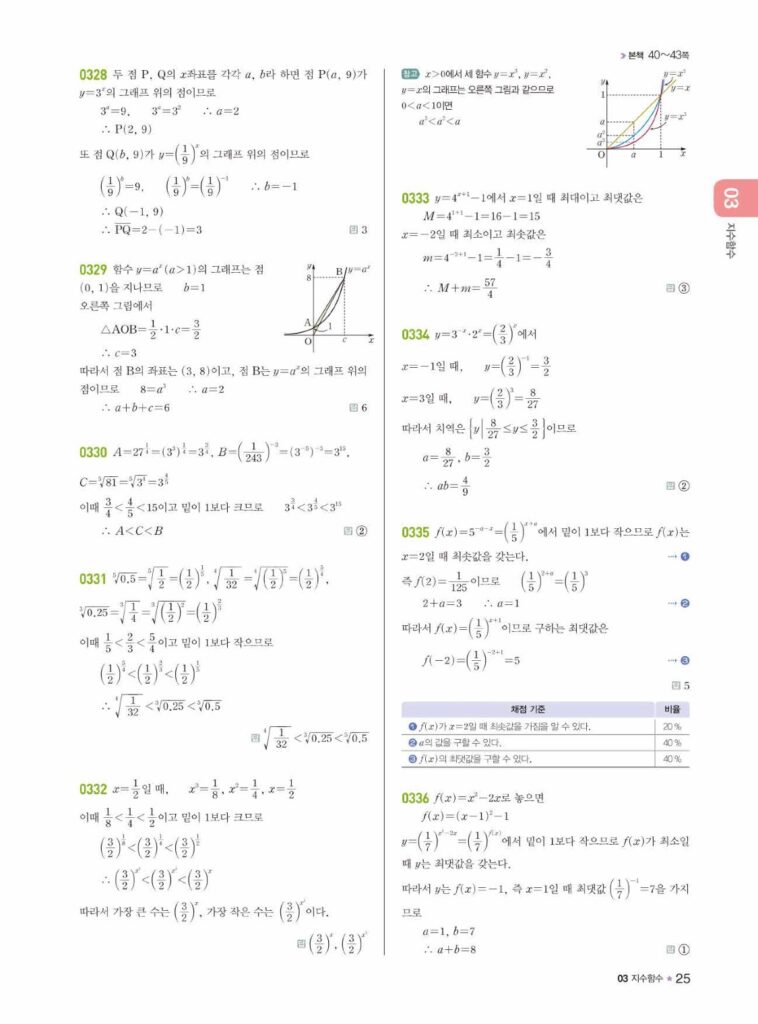 본책 40~43쪽
0328 두 점 P, Q의 x좌표를 각각 a, b라 하면 점 P(a, 9)가
y=3^x의 그래프 위의 점이므로
3^a=9, 3^a=3^2 ∴ a=2
∴ P(2, 9)
또 점 Q(b, 9)가 y=(1/9)^x의 그래프 위의 점이므로
(1/9)^b=9, (1/9)^b=(1/9)^-1 ∴ b=-1
∴ Q(-1, 9)
∴ PQ=2-(-1)=3 답 3
0329 함수 y=a^x(a>1)의 그래프는 점
(0, 1)을 지나므로 b=1
오른쪽 그림에서
△AOB=1/2·1·c=3/2
∴ c=3
따라서 점 B의 좌표는 (3, 8)이고, 점 B는 y=a^x의 그래프 위의
점이므로 8=a^3 ∴ a=2
∴ a+b+c=6 답 6
y
8
B
y=a^x
A
1
O
c
x
0330 A=27^(1/4)=(3^3)^(1/4)=3^(3/4), B=(1/243)^-3=(3^-5)^-3=3^15,
C=⁵√81=⁵√3^4=3^(4/5)
이때 3/4<4/5<15이고 밑이 1보다 크므로 3^(3/4)<3^(4/5)<3^15
∴ A<C<B 답 ②
0331 ⁵√0.5=⁵√(1/2)=(1/2)^(1/5), ⁴√(1/32)=⁴√((1/2)^5)=(1/2)^(5/4),
³√0.25=³√(1/4)=³√((1/2)^2)=(1/2)^(2/3)
이때 1/5<2/3<5/4이고 밑이 1보다 작으므로
(1/2)^(5/4)<(1/2)^(2/3)<(1/2)^(1/5)
∴ ⁴√(1/32)<³√0.25<⁵√0.5
답 ⁴√(1/32)<³√0.25<⁵√0.5
0332 x=1/2일 때, x^3=1/8, x^2=1/4, x=1/2
이때 1/8<1/4<1/2이고 밑이 1보다 크므로
(3/2)^(1/8)<(3/2)^(1/4)<(3/2)^(1/2)
∴ (3/2)^(x^3)<(3/2)^(x^2)<(3/2)^x
따라서 가장 큰 수는 (3/2)^x, 가장 작은 수는 (3/2)^(x^3)이다.
답 (3/2)^x, (3/2)^(x^3)
참고 x>0에서 세 함수 y=x^3, y=x^2,
y=x의 그래프는 오른쪽 그림과 같으므로
0<a<1이면
a^3<a^2<a
y
y=x^2
y=x
y=x^3
1
a
a^2
a^3
O
a
1
x
0333 y=4^(x+1)-1에서 x=1일 때 최대이고 최댓값은
M=4^(1+1)-1=16-1=15
x=-2일 때 최소이고 최솟값은
m=4^(-2+1)-1=1/4-1=-3/4
∴ M+m=57/4 답 ③
0334 y=3^-x·2^x=(2/3)^x에서
x=-1일 때, y=(2/3)^-1=3/2
x=3일 때, y=(2/3)^3=8/27
따라서 치역은 {y|8/27≤y≤3/2}이므로
a=8/27, b=3/2
∴ ab=4/9 답 ②
0335 f(x)=5^(-a-x)=(1/5)^(x+a)에서 밑이 1보다 작으므로 f(x)는
x=2일 때 최솟값을 갖는다. ⋯ ❶
즉 f(2)=1/125이므로 (1/5)^(2+a)=(1/5)^3
2+a=3 ∴ a=1 ⋯ ❷
따라서 f(x)=(1/5)^(x+1)이므로 구하는 최댓값은
f(-2)=(1/5)^(-2+1)=5 ⋯ ❸
답 5
채점 기준 비율
❶ f(x)가 x=2일 때 최솟값을 가짐을 알 수 있다. 20%
❷ a의 값을 구할 수 있다. 40%
❸ f(x)의 최댓값을 구할 수 있다. 40%
0336 f(x)=x^2-2x로 놓으면
f(x)=(x-1)^2-1
y=(1/7)^(x^2-2x)=(1/7)^f(x)에서 밑이 1보다 작으므로 f(x)가 최소일
때 y는 최댓값을 갖는다.
따라서 y는 f(x)=-1, 즉 x=1일 때 최댓값 (1/7)^-1=7을 가지
므로
a=1, b=7
∴ a+b=8 답 ①
03
지수함수
03 지수함수 ★ 25